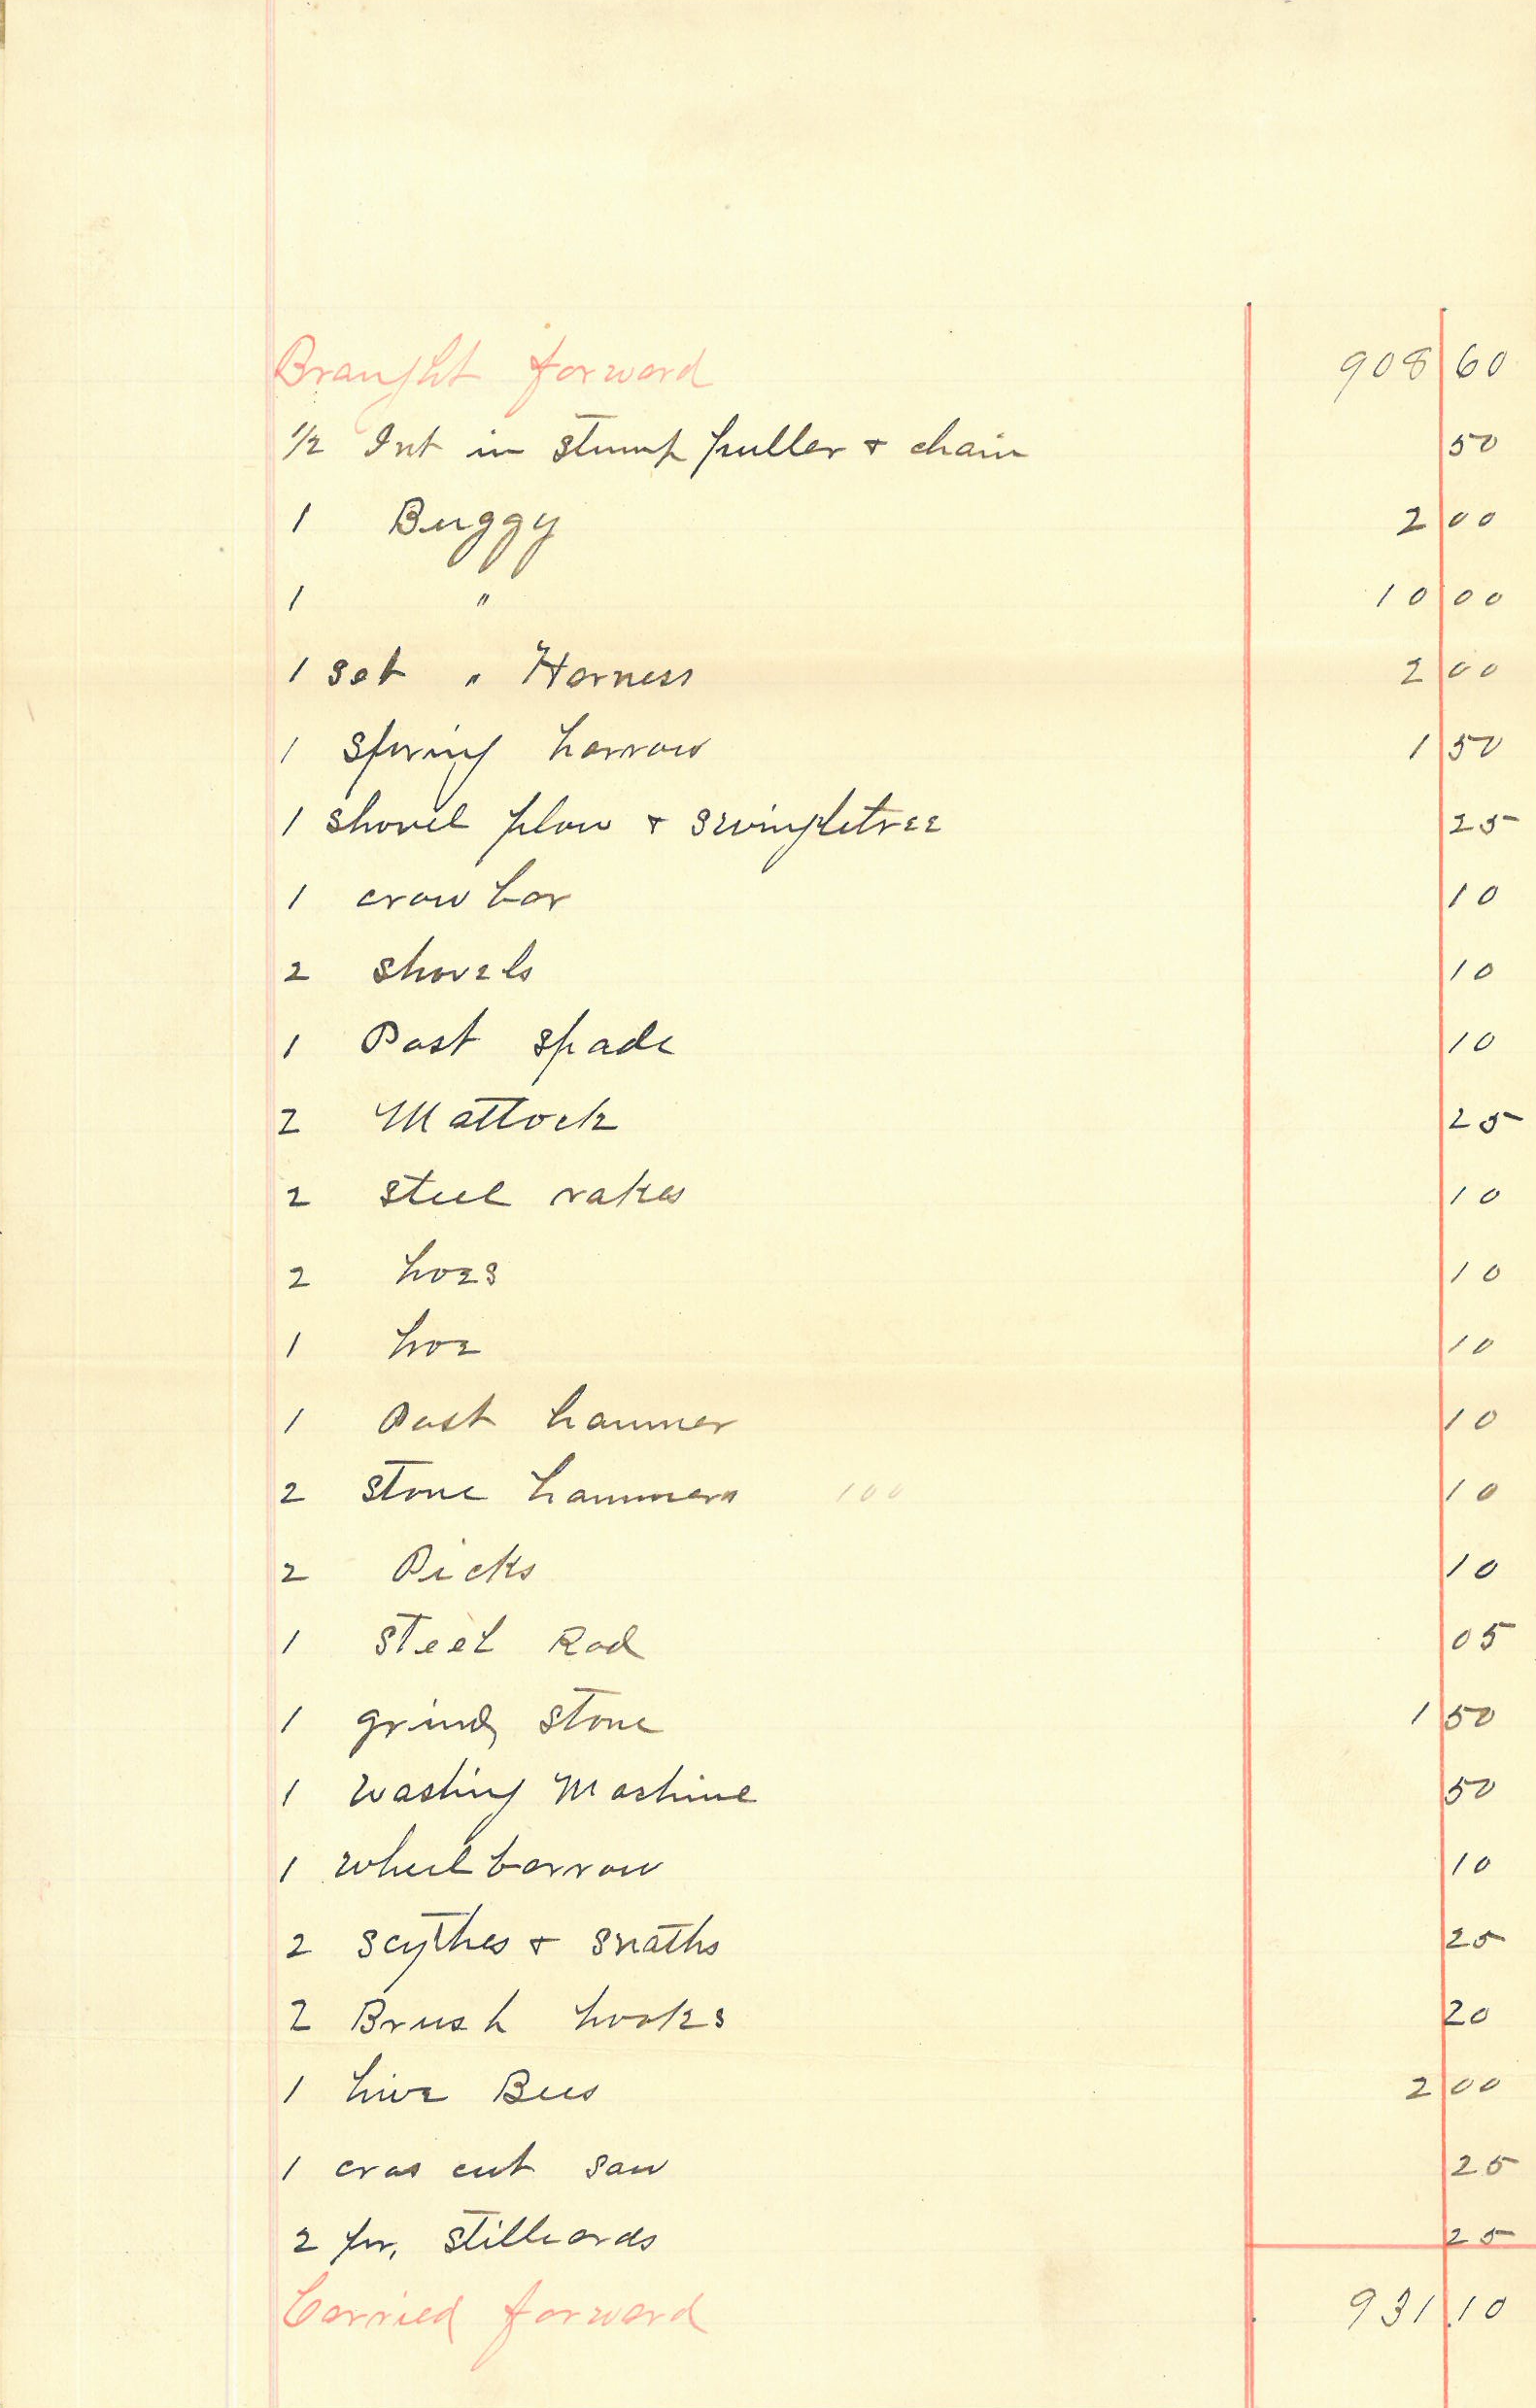 Braught forward 908 60
1/2 Int in stump puller + chain 50
1 Buggy 2 00
1 " 10 00
1 set " Harness 2 00
1 Spring harrow 1 50
1 shovel plow + swingletree 25
1 crow bar 10
2 shovels 10
1 Post spade 10
2 Mattock 25
2 steel rakes 10
2 hoes 10
1 hoe 10
1 Post hammer 10
2 stone hammers 100 10
2 Picks 10
1 steel Rod 05
1 grind stone 1 50
1 Washing Mashine 50
1 wheel barrow 10
2 scythes + snaths 25
2 Brush hooks 20
1 hive Bees 2 00
1 cros cut saw 25
2 pr. stilleards 25
Carried forward 931 10